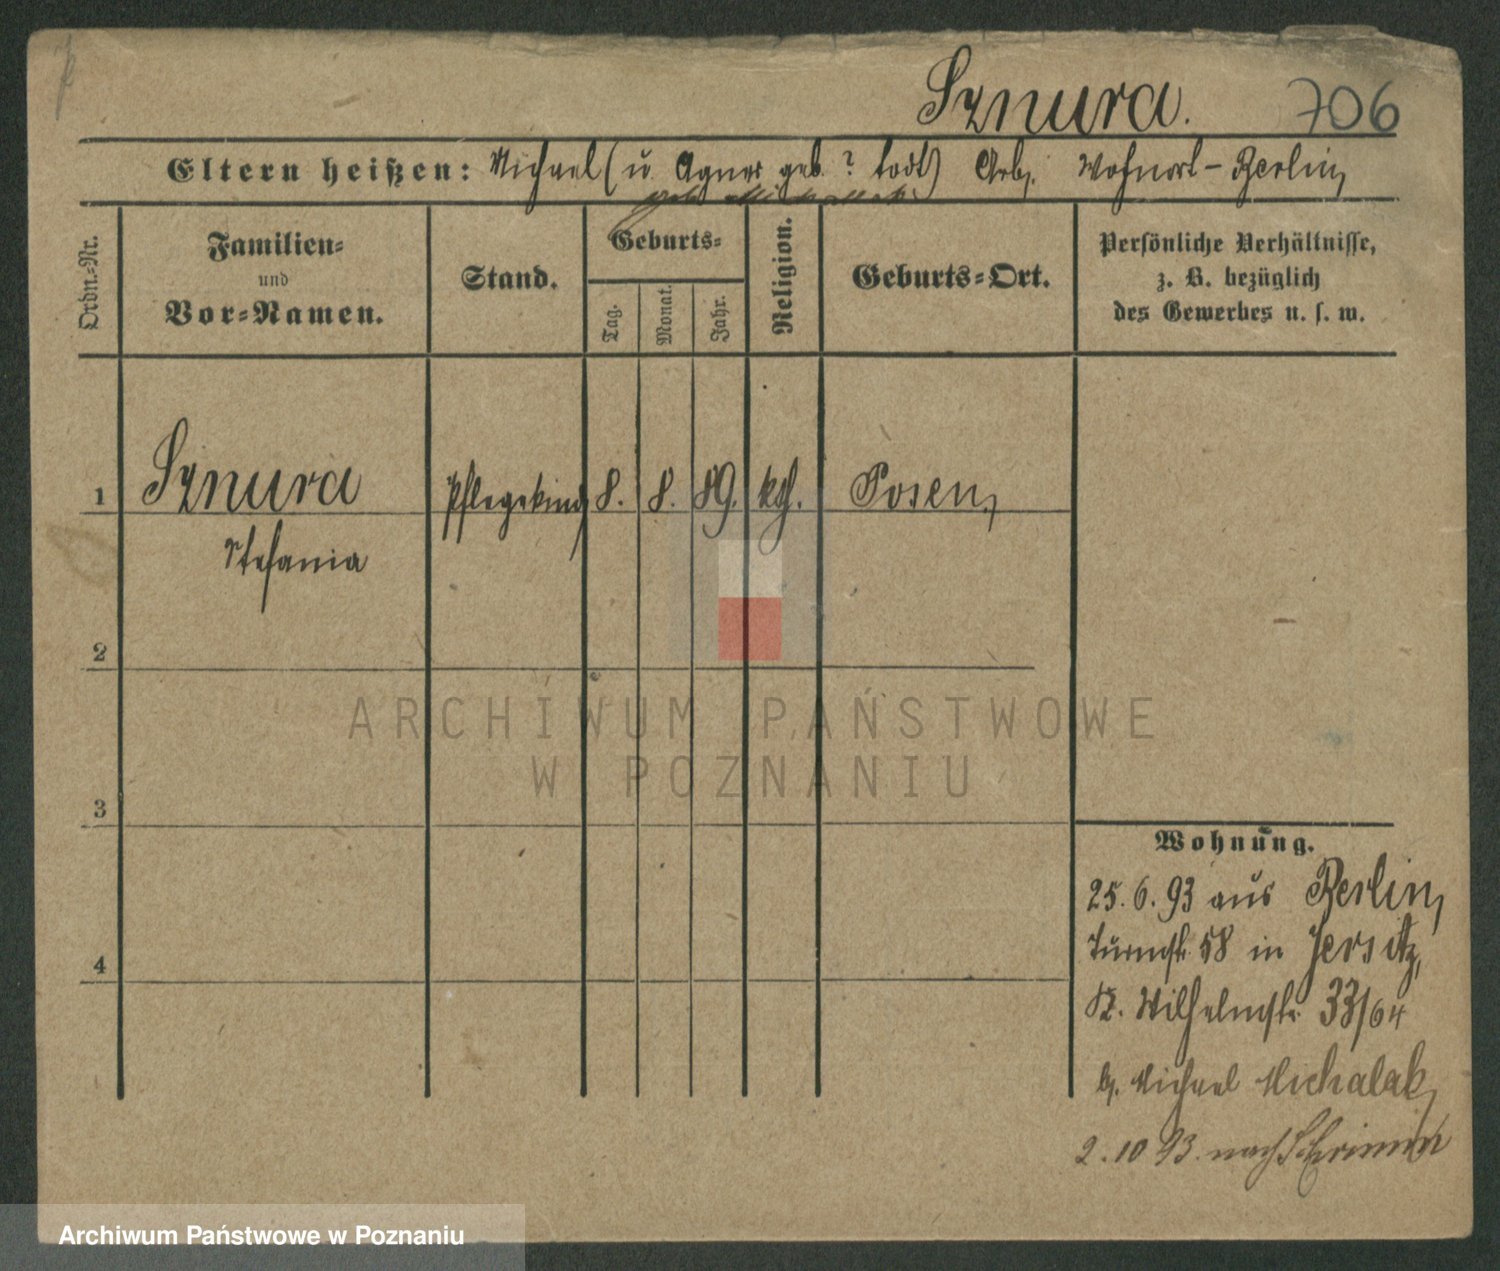 Sznura. 706
Eltern heißen: Michael (u. Agnes geb. ? todt) Arb. Wohnort - Berlin,
geb. Michalak
Ordn.-Nr.
Familien-
und
Vor-Namen.
Stand.
Geburts-
Tag.
Monat.
Jahr.
Religion.
Geburts-Ort.
Persönliche Verhältnisse,
z. B. bezüglich
des Gewerbes u. s. w.
1 Sznura Pflegekind 8. 8. 89. kth. Posen,
Stefania
2
3
4
Wohnung.
25. 6. 93 aus Berlin,
Turmstr. 58 in Jersitz,
K. Wilhelmstr. 33/64
b. Michael Michalak,
2. 10 93. nach Schrimm
ARCHIWUM PAŃSTWOWE
W POZNANIU
Archiwum Państwowe w Poznaniu